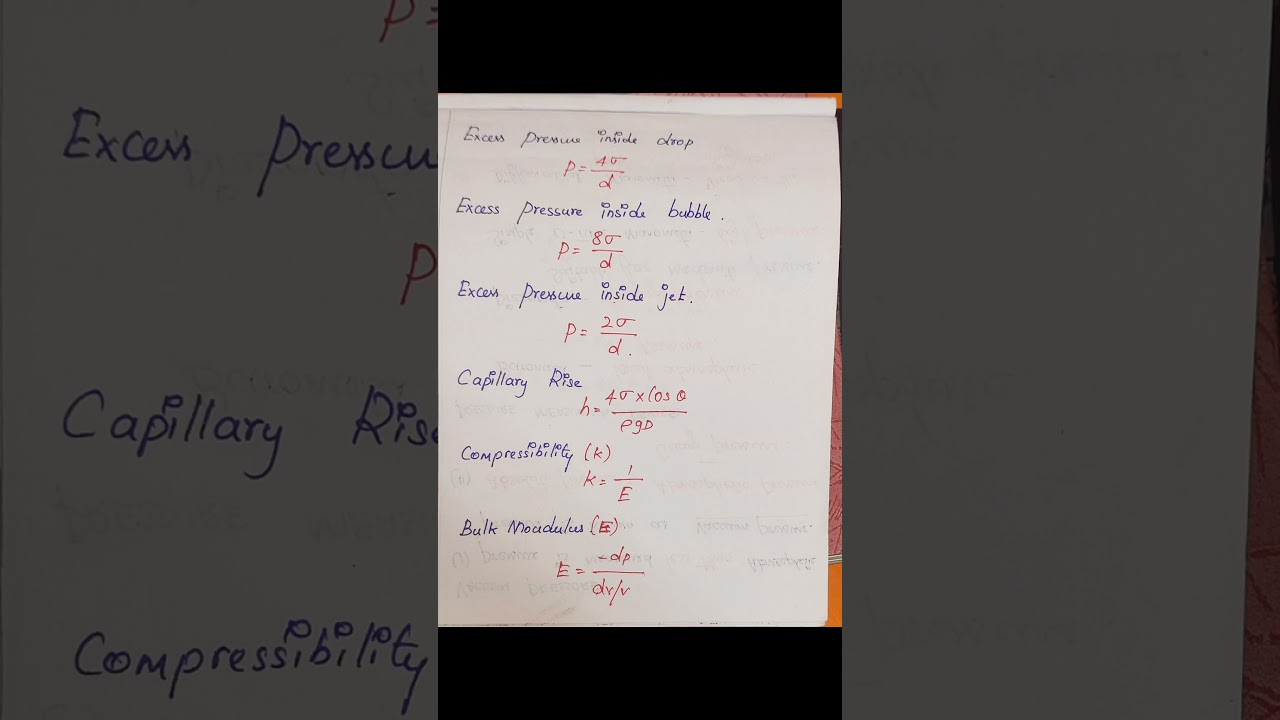 Excess pressure inside drop
P = 4σ/d
Excess pressure inside bubble.
P = 8σ/d
Excess pressure inside jet.
P = 2σ/d.
Capillary Rise
h = 4σ x Cos θ/ρgD
Compressibility (k)
k = 1/E
Bulk Moadulus (E)
E = -dp/dv/v